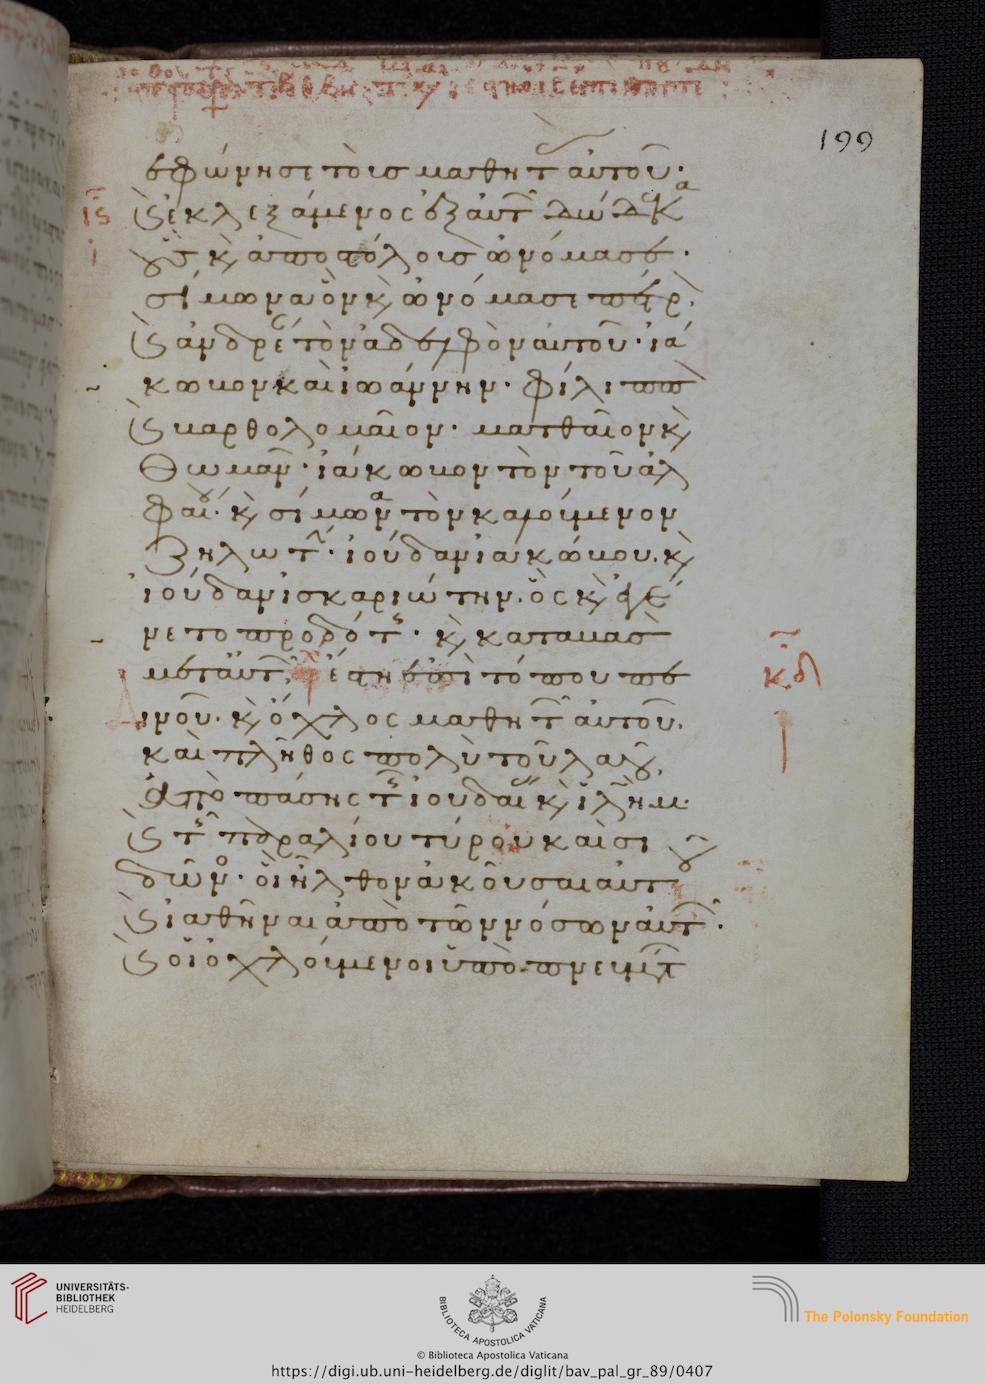 199
ἐφώνησε τοῖς μαθητ αὐτοῦ·
ις
κ ἐκλεξάμενος ἐξ αὐτ δώδεκα
ι
οὓς κ ἀποστόλοις ὠνόμασε·
σίμωνα ὃν κ ὠνόμασε πέτρ
κ ἀνδρέ τὸν ἀδελφὸν αὐτοῦ· ἰά
κωβον καὶ ἰωάννην· φίλιππ
κ βαρθολομαῖον· ματθαῖον κ
θωμᾶν· ἰάκωβον τὸν τοῦ ἀλ
φαίου· κ σίμωνα τὸν καλούμενον
ζηλωτ· ἰούδαν ἰακώβου. κ
ἰούδαν ἰσκαριώτην. ὃς κ ἐγέ
νετο προδότης· κ καταβὰς
μετ αὐτ ἔστη ἐπὶ τόπου πε
κδ
δινοῦ. κ ὄχλος μαθητ αὐτοῦ.
καὶ πλῆθος πολὺ τοῦ λαοῦ
ἀπὸ πάσης τῆς ἰουδαίας κ ἰλημ
κ τῆς παραλίου τύρου καὶ σι
δῶνος· οἳ ἦλθον ἀκοῦσαι αὐτοῦ
κ ἰαθῆναι ἀπὸ τῶν νόσων αὐτ·
κ οἱ ὀχλούμενοι ὑπὸ πνευμτ
UNIVERSITÄTS-
BIBLIOTHEK
HEIDELBERG
BIBLIOTECA APOSTOLICA VATICANA
The Polonsky Foundation
© Biblioteca Apostolica Vaticana
https://digi.ub.uni-heidelberg.de/diglit/bav_pal_gr_89/0407